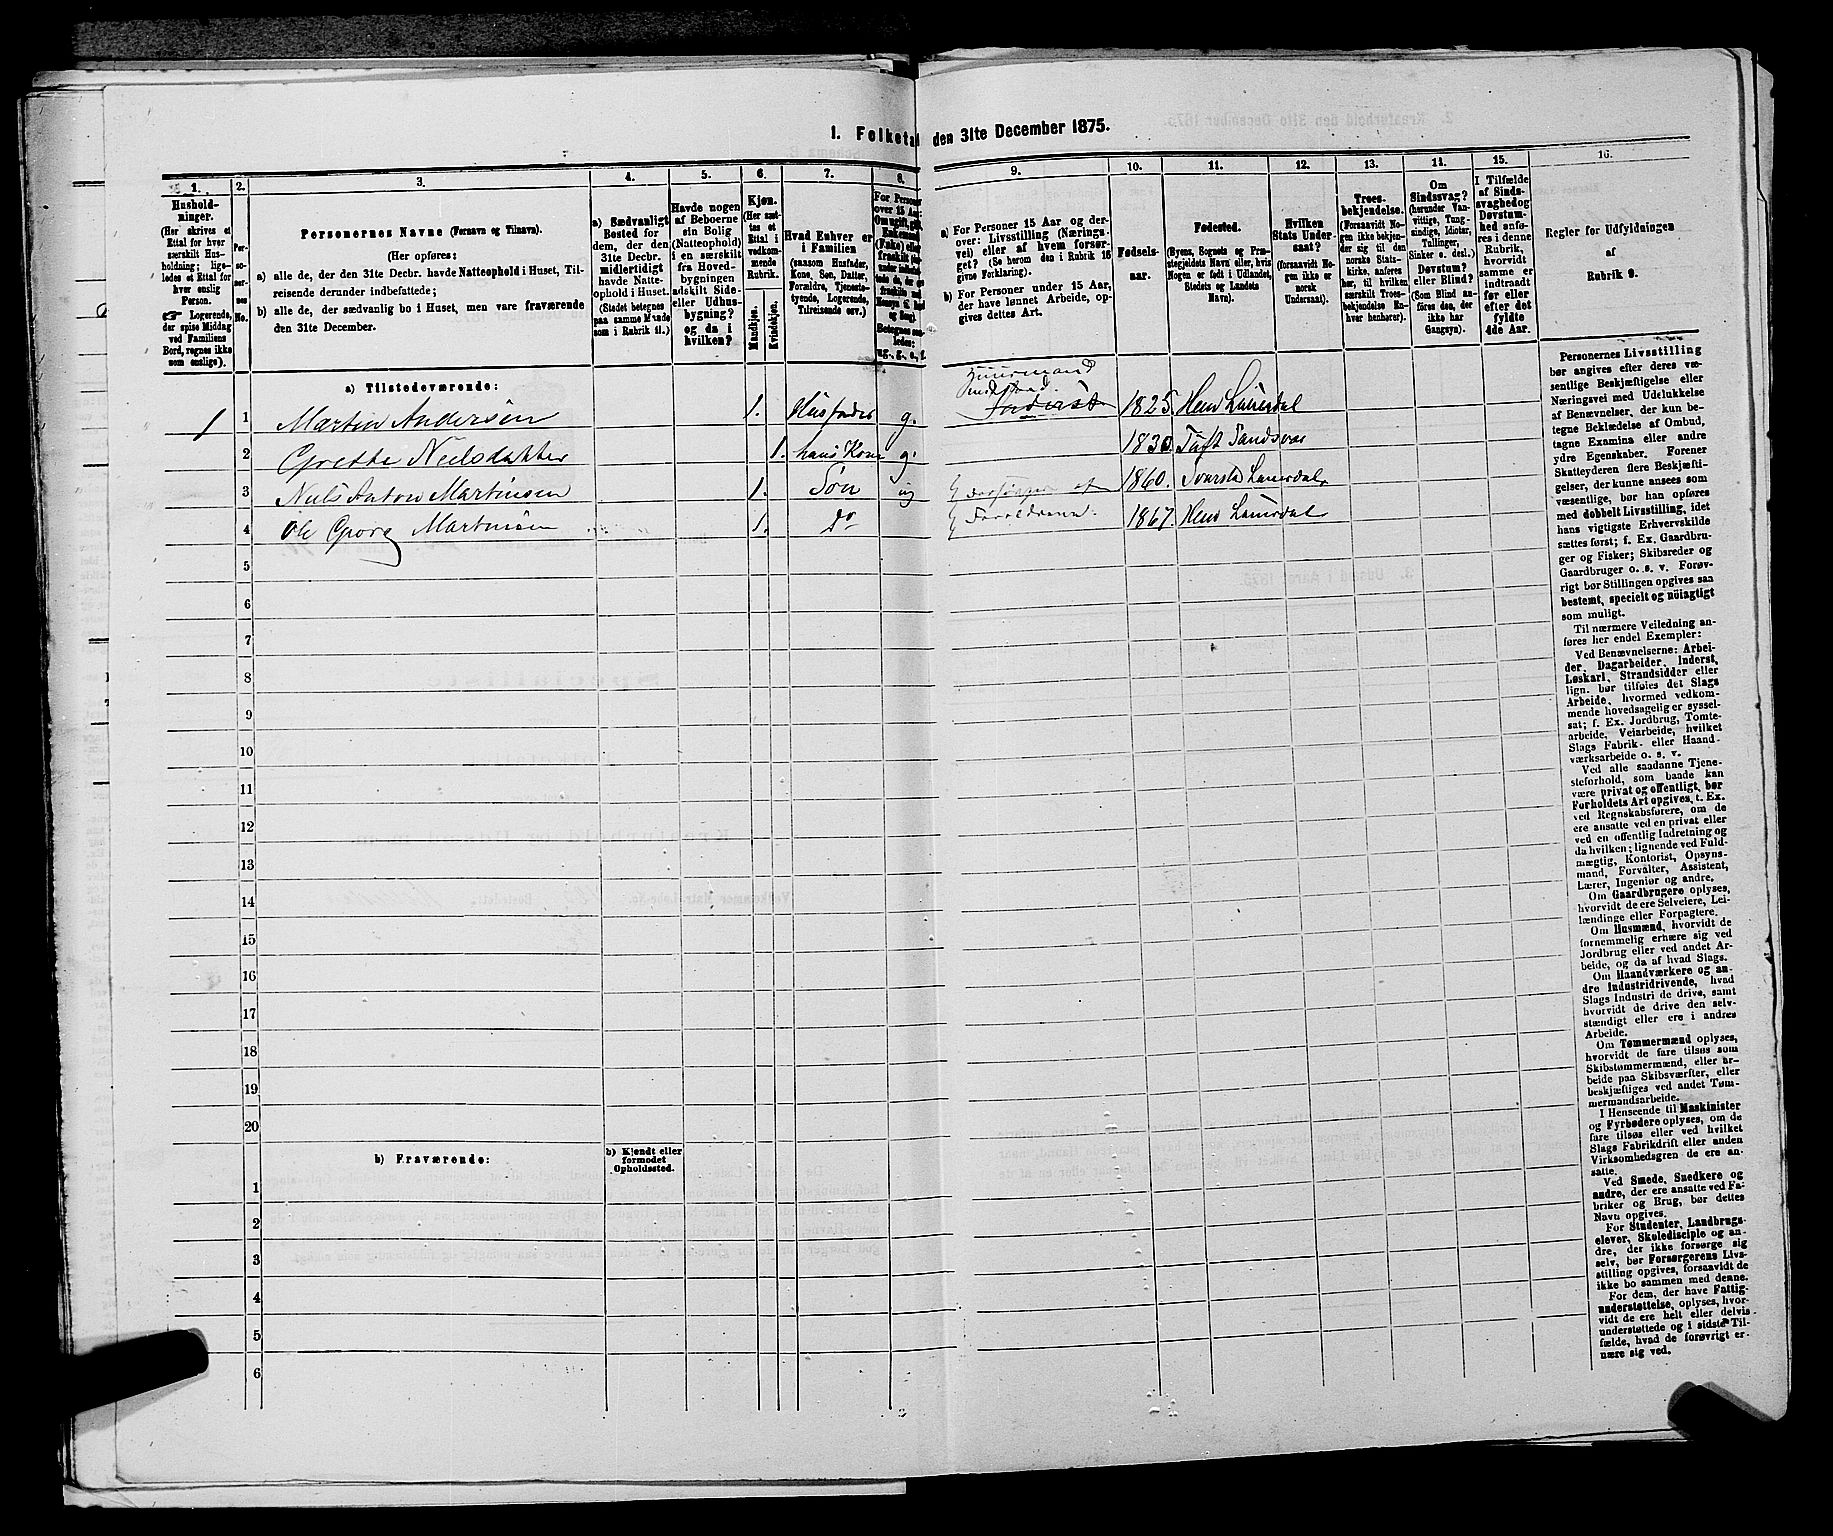 1. Folketal den 31te December 1875.
1. 2. 3. 4. 5. 6. 7. 8. 9. 10. 11. 12. 13. 14. 15. 16.
Hushold-
ninger.
(Her skrives et
Ettal for hver
særskilt Hus-
holdning; lige-
ledes et Ettal for
hver enslig
Person.
Logerende,
der spise Middag
ved Familiens
Bord, regnes ikke
som enslige).
Per-
so-
ner-
nes
No.
Personernes Navne (Fornavn og Tilnavn).
(Her opføres:
a) alle de, der den 31te Decbr. havde Natteophold i Huset, Til-
reisende derunder indbefattede;
b) alle de, der sædvanlig bo i Huset, men vare fraværende
den 31te December.
a) Sædvanligt
Bosted for
dem, der den
31te Decbr.
midlertidigt
havde Natte-
ophold i Huset.
(Stedet betegnes
paa samme Maade
som i Rubrik 11.)
Havde nogen
af Beboerne
sin Bolig
(Natteophold)
i en særskilt
fra Hoved-
bygningen
adskilt Side-
eller Udhus-
bygning?
og da i
hvilken?
Kjøn.
(Her sæt-
tes et
Ettal i
vedkom-
mende
Rubrik.
Mandkjøn.
Kvindekjøn.
Hvad Enhver er
i Familien
(saasom Husfader,
Kone, Søn, Datter,
Forældre, Tjeneste-
tyende, Logerende,
Tilreisende osv.)
For Personer
over 15 Aar:
Om ugift, gift,
Enkemand
(Enke) eller
fraskilt
Betegnes saa-
ledes:
ug., g., e., f.
a) For Personer 15 Aar og der-
over: Livsstilling (Nærings-
vei) eller af hvem forsør-
get? (Se herom den i Rubrik 16
givne Forklaring).
b) For Personer under 15 Aar,
der have lønnet Arbeide, op-
gives dettes Art.
Fødsels-
aar.
Fødested.
(Byens, Sognets og Præ-
stegjeldets Navn eller, hvis
Nogen er født i Udlandet,
Stedets og Landets
Navn).
Hvilken
Stats Under-
saat?
(forsaavidt No-
gen ikke er
norsk
Undersaat).
Troes-
bekjendelse.
(Forsaavidt No-
gen ikke bekjen-
der sig til den
norske Stats-
kirke, anføres
her, til hvilken
særskilt Troes-
bekjendelse En-
hver henhører).
Om
Sindssvag?
(herunder Van-
vittige, Tung-
sindige, Idioter,
Tullinger,
Sinker o. desl.)
Døvstum?
eller Blind?
(Som Blind an-
føres den, der
ikke har
Gangsyn).
I Tilfælde
af Sinds-
svaghed og
Døvstum-
hed anfø-
res i denne
Rubrik,
hvorvidt
samme er
indtraadt
før eller
efter det
fyldte
4de Aar.
Regler for Udfyldningen
af
Rubrik 9.
a) Tilstedeværende:
1 1 Martin Andersen 1. Husfader g. Inderst 1825. Hem Laurdal
2 Grethe Neilsdatter 1. hans Kone g. 1830. Tuft Sandsvær
3 Neils Anton Martinsen 1. Søn ug Forsørges af 1860. Svarstad Laurdal
4 Ole Georg Martinsen 1. Do Forældrene 1867. Hem Laurdal
5
6
7
8
9
10
11
12
13
14
15
16
17
18
19
20
b) Fraværende:
b) Kjendt eller
formodet
Opholdssted.
1
2
3
4
5
6
Personernes Livsstilling
bør angives efter deres væ-
sentlige Beskjæftigelse eller
Næringsvei med Udelukkelse
af Benævnelser, der kun be-
tegne Beklædelse af Ombud,
tagne Examina eller andre
ydre Egenskaber. Forener
Skatteyderen flere Beskjæfti-
gelser, der kunne ansees som
væsentlige, bør han opføres
med dobbelt Livsstilling, idet
hans vigtigste Erhvervskilde
sættes først; f. Ex. Gaardbru-
ger og Fisker; Skibsreder og
Gaardbruger o. s. v. Forøv-
rigt bør Stillingen opgives saa
bestemt, specielt og nøiagtigt
som muligt.
Til nærmere Veiledning an-
føres her endel Exempler:
Ved Benævnelserne: Arbei-
der, Dagarbeider, Inderst,
Løskarl, Strandsidder eller
lign. bør tilføies det Slags
Arbeide, hvormed vedkom-
mende hovedsagelig er syssel-
sat; f. Ex. Jordbrug, Tomte-
arbeide, Veiarbeide, hvilket
Slags Fabrik- eller Haand-
værksarbeide o. s. v.
Ved alle saadanne Tjene-
steforhold, som baade kan
være privat og offentligt, bør
Forholdets Art opgives, t. Ex.
ved Regnskabsførere, om de
ere ansatte ved en privat eller
ved en offentlig Indretning og
da hvilken; lignende ved Fuld-
mægtig, Kontorist, Opsyns-
mand, Forvalter, Assistent,
Lærer, Ingeniør og andre.
Om Gaardbrugere oplyses,
hvorvidt de ere Selveiere, Lei-
lændinge eller Forpagtere.
Om Husmænd, hvorvidt de
fornemmelig erhære sig ved
Jordbrug eller ved andet Ar-
beide, og da af hvad Slags.
Om Haandværkere og an-
dre Industridrivende, hvad
Slags Industri de drive, samt
hvorvidt de drive den selv-
stændigt eller ere i andres
Arbeide.
Om Tømmermænd oplyses,
hvorvidt de fare tilsøs som
Skibstømmermænd, eller ar-
beide paa Skibsværfter, eller
beskjæftiges ved andet Tøm-
mermandsarbeide.
I Henseende til Maskinister
og Fyrbødere oplyses, om de
fare tilsøs eller ved hvilket
Slags Fabrikdrift eller anden
Virksomhedsgren de ere an-
satte.
Ved Smede, Snedkere og
andre, der ere ansatte ved Fa-
briker og Brug, bør dettes
Navn opgives.
For Studenter, Landbrugs-
elever, Skoledisciple og an-
dre, der ikke forsørge sig
selv, bør Forsørgerens Livs-
stilling opgives, forsaavidt de
ikke bo sammen med denne.
For dem, der have Fattig-
understøttelse, oplyses, hvor-
vidt de ere helt eller delvis
understøttede og i sidste Til-
fælde, hvad de forøvrigt er-
nære sig ved.